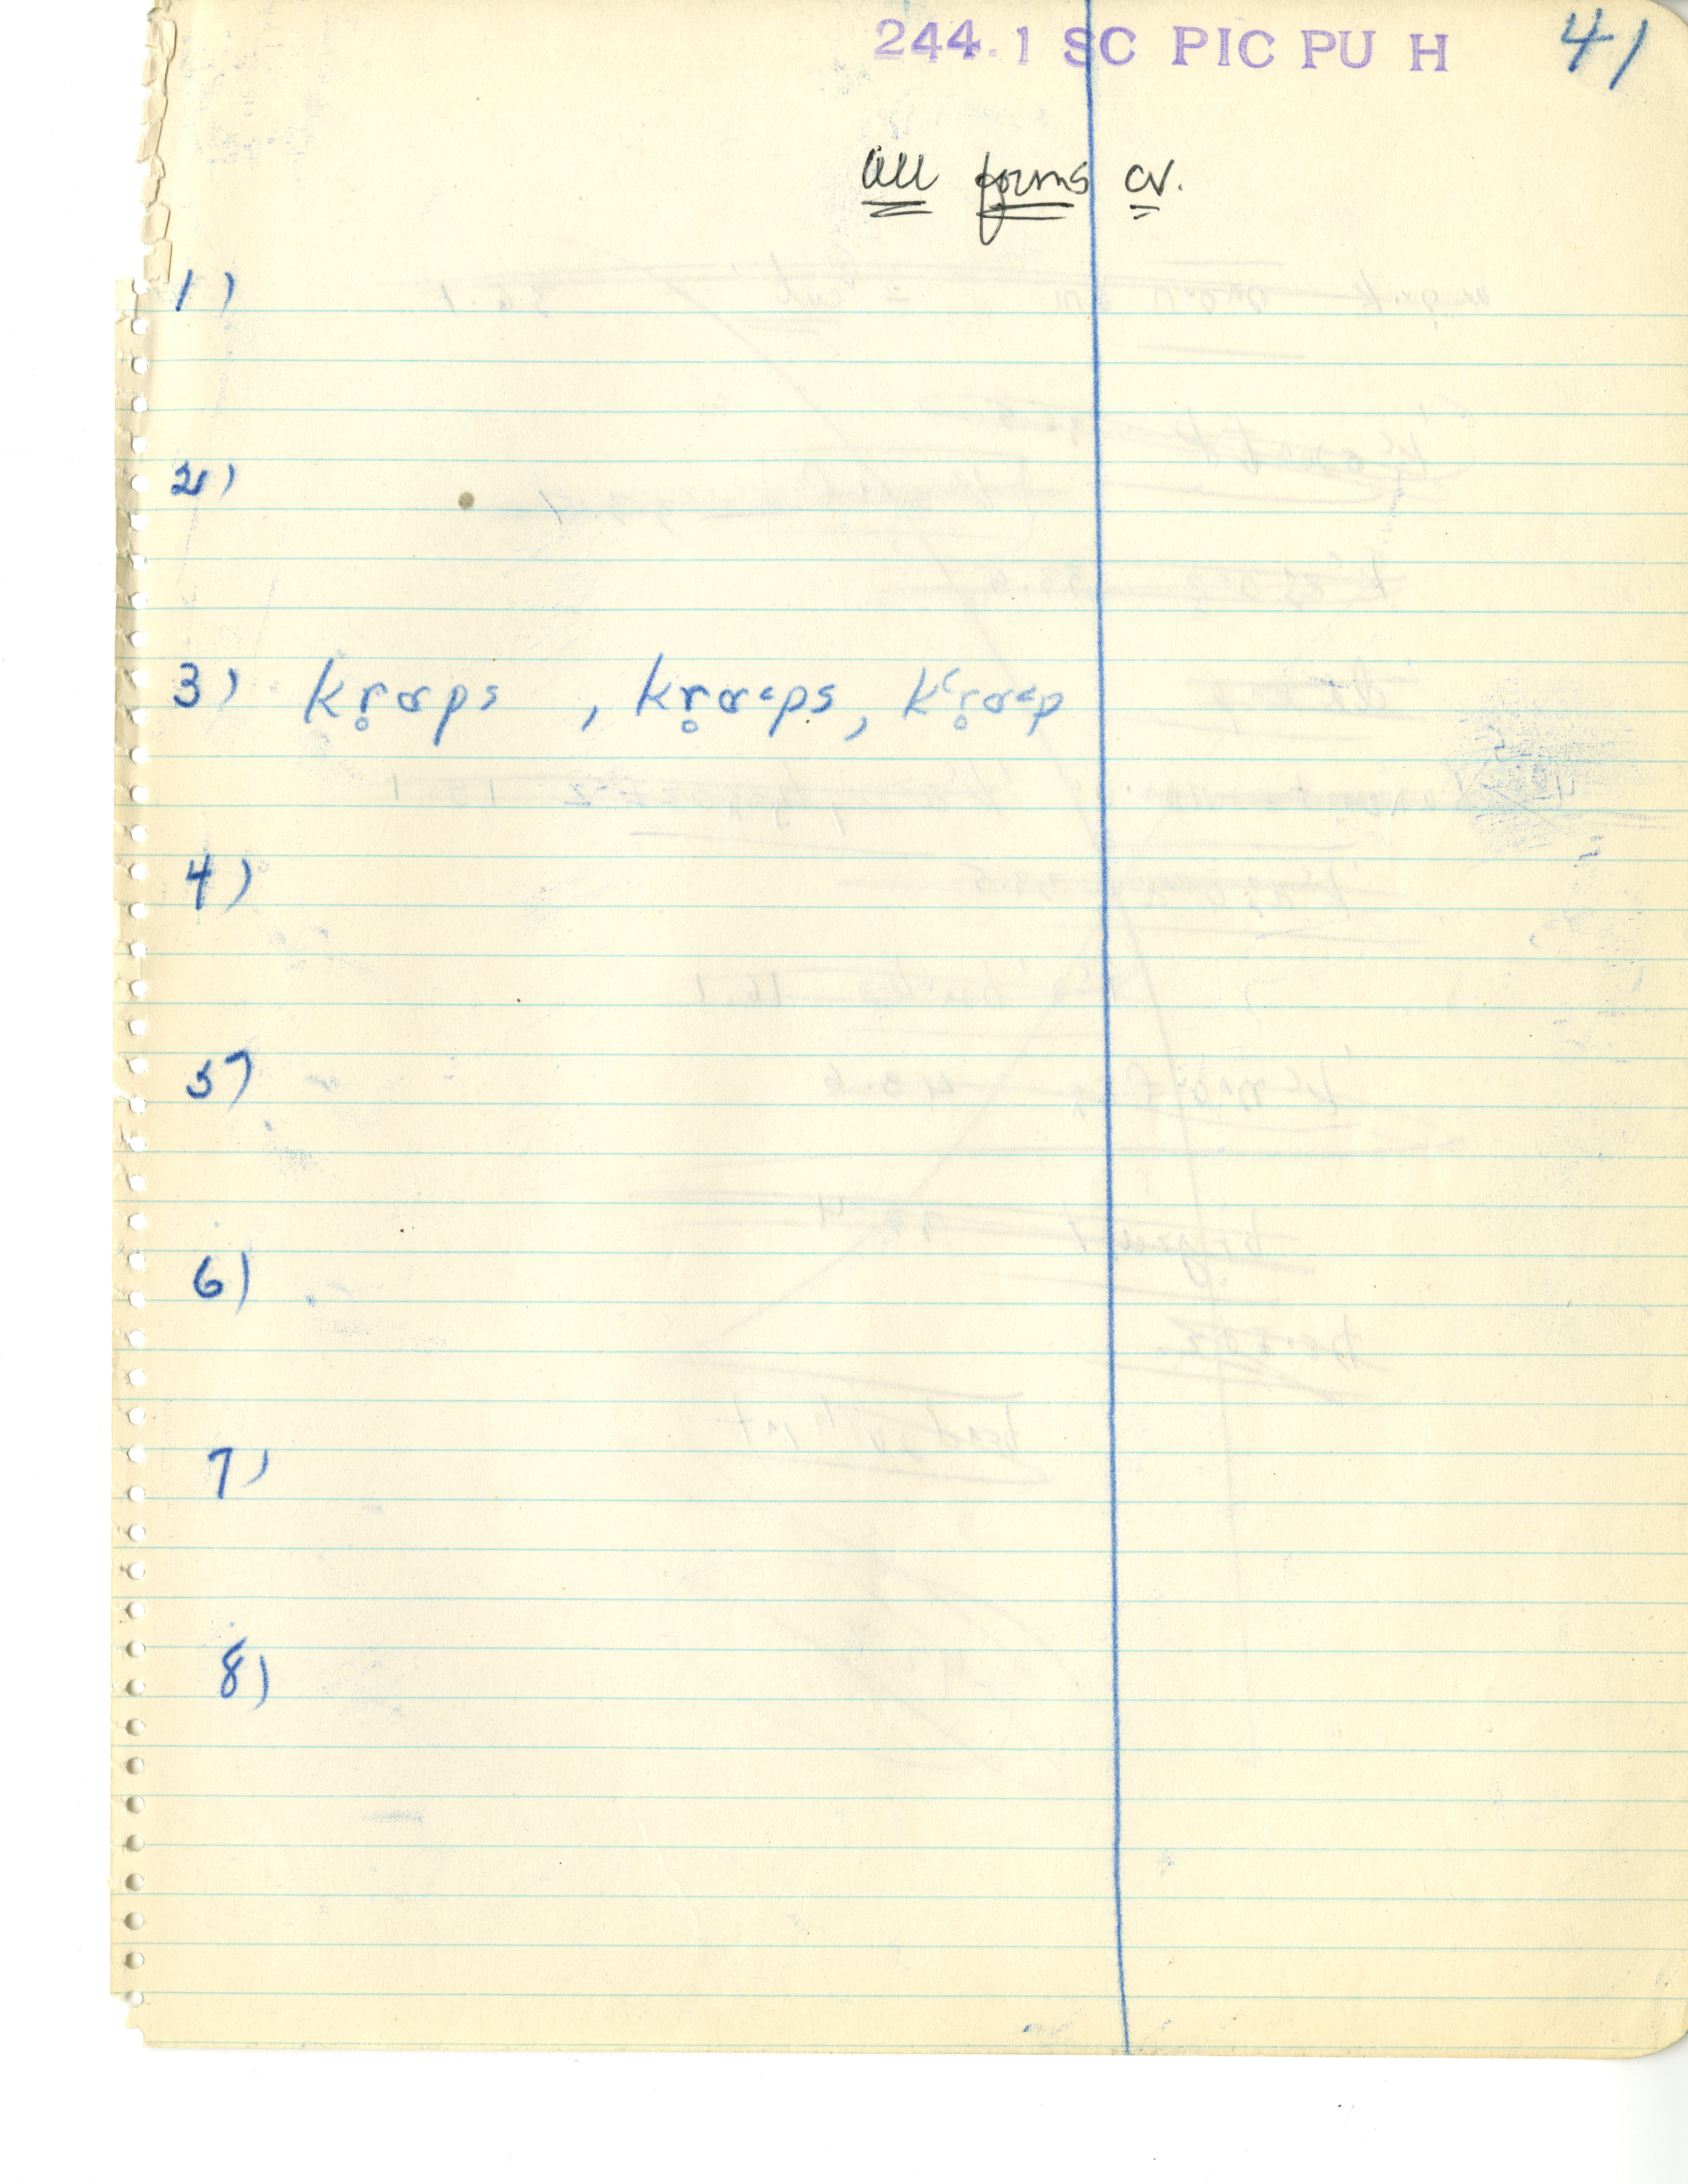 244.1 SC PIC PU H 41
All forms cv.
1)
2)
3) kr̥ɑps , kr̥ɑˑps, kʻr̥ɑˑp
4)
5)
6)
7)
8)